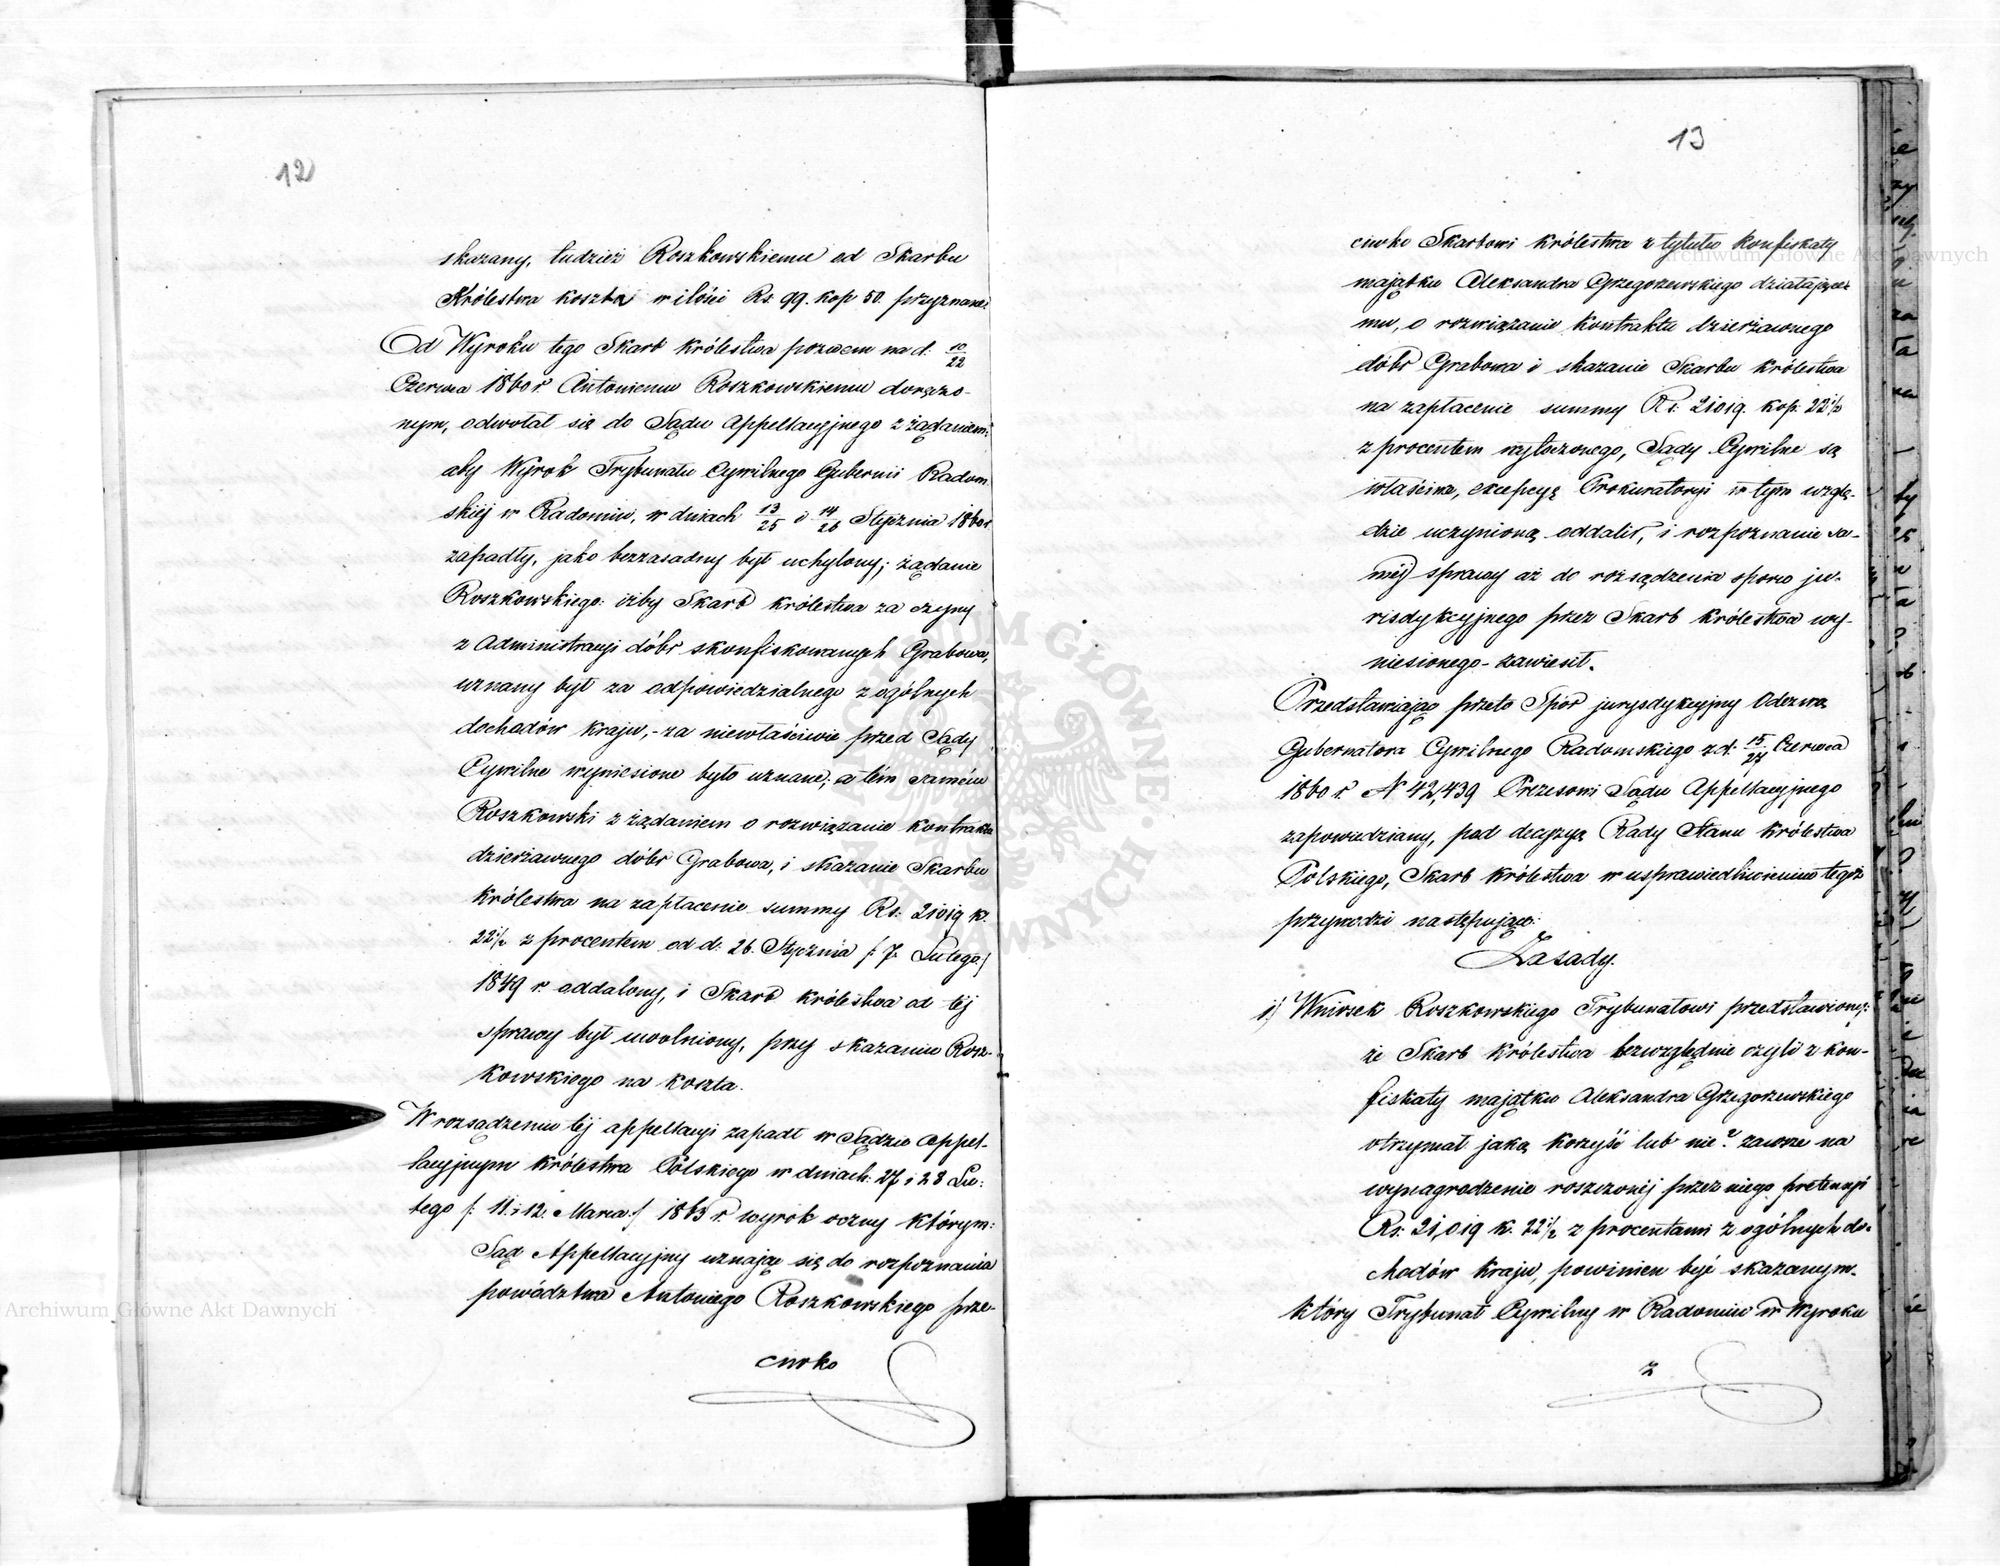 12
skazany, tudzież Roszkowskiemu od Skarbu
Królestwa koszta w ilości Rs. 99. kop 50. przyznane.
Od Wyroku tego Skarb Królestwa pozwem na d. 10/22
Czerwca 1860 r. Antoniemu Roszkowskiemu doręczo-
nym, odwołał się do Sądu Appellacyjnego z żądaniem:
aby Wyrok Trybunału Cywilnego Gubernii Radom
skiej w Radomiu, w dniach 13/25 i 14/26 Stycznia 1860 r
zapadły, jako bezzasadny był uchylony; żądanie
Roszkowskiego: iżby Skarb Królestwa za czyny
z Administracyi dóbr skonfiskowanych Grabowa,
uznany był za odpowiedzialnego z ogólnych
dochodów kraju, - za niewłaściwie przed Sądy
Cywilne wyniesione było uznane; a tém samém
Roszkowski z żądaniem o rozwiązanie kontraktu
dzierżawnego dóbr Grabowa, i skazanie Skarbu
Królestwa na zapłacenie summy Rs: 21019 k.
22 1/2 z procentem od d: 26. Stycznia /: 7. Lutego :/
1849 r. oddalony, i Skarb Królestwa od tej
sprawy był uwolniony, przy skazaniu Rosz-
kowskiego na koszta.
W rozsądzeniu tej appellacyi zapadł w Sądzie Appel-
lacyjnym Królestwa Polskiego w dniach: 27 i 28 Lu-
tego /: 11. i 12. Marca :/ 1863 r. wyrok oczny którym:
Sąd Appellacyjny uznając się do rozpoznania
powództwa Antoniego Roszkowskiego prze-
ciwko
13
ciwko Skarbowi Królestwa z tytułu konfiskaty
majątku Aleksandra Grzegorzewskiego działające
mu, o rozwiązanie kontraktu dzierżawnego
dóbr Grabowa i skazanie Skarbu Królestwa
na zapłacenie summy Rs: 21019. kop. 22 1/2
z procentem wytoczonego, Sądy Cywilne są
właściwe, excepcyą Prokuratoryi w tym wzglę-
dzie uczynioną oddalił, i rozpoznanie sa-
méj sprawy aż do rozsądzenia sporu ju-
risdykcyjnego przez Skarb Królestwa wy-
niesionego - zawiesił.
Przedstawiając przeto Spór jurysdykcyjny Odezwą
Gubernatora Cywilnego Radomskiego z d: 15/27 Czerwca
1860 r. N 42,439 Prezesowi Sądu Appellacyjnego
zapowiedziany, pod decyzyą Rady Stanu Królestwa
Polskiego, Skarb Królestwa w usprawiedliwieniu tegoż
przywodzi następujące:
Zasady.
1.) Wniosek Roszkowskiego Trybunałowi przedstawiony:
że Skarb Królestwa bezwzględnie czyli z kon-
fiskaty majątku Aleksandra Grzegorzewskiego
otrzymał jaką korzyść lub nie? zawsze na
wynagrodzenie roszczonéj przez niego pretensyi
Rs: 21,019 k. 22 1/2 z procentami z ogólnych do-
chodów kraju, powinien być skazanym.
który Trybunał Cywilny w Radomiu w Wyroku
z
Archiwum Główne Akt Dawnych
Archiwum Główne Akt Dawnych
ARCHIWUM GŁÓWNE AKT DAWNYCH